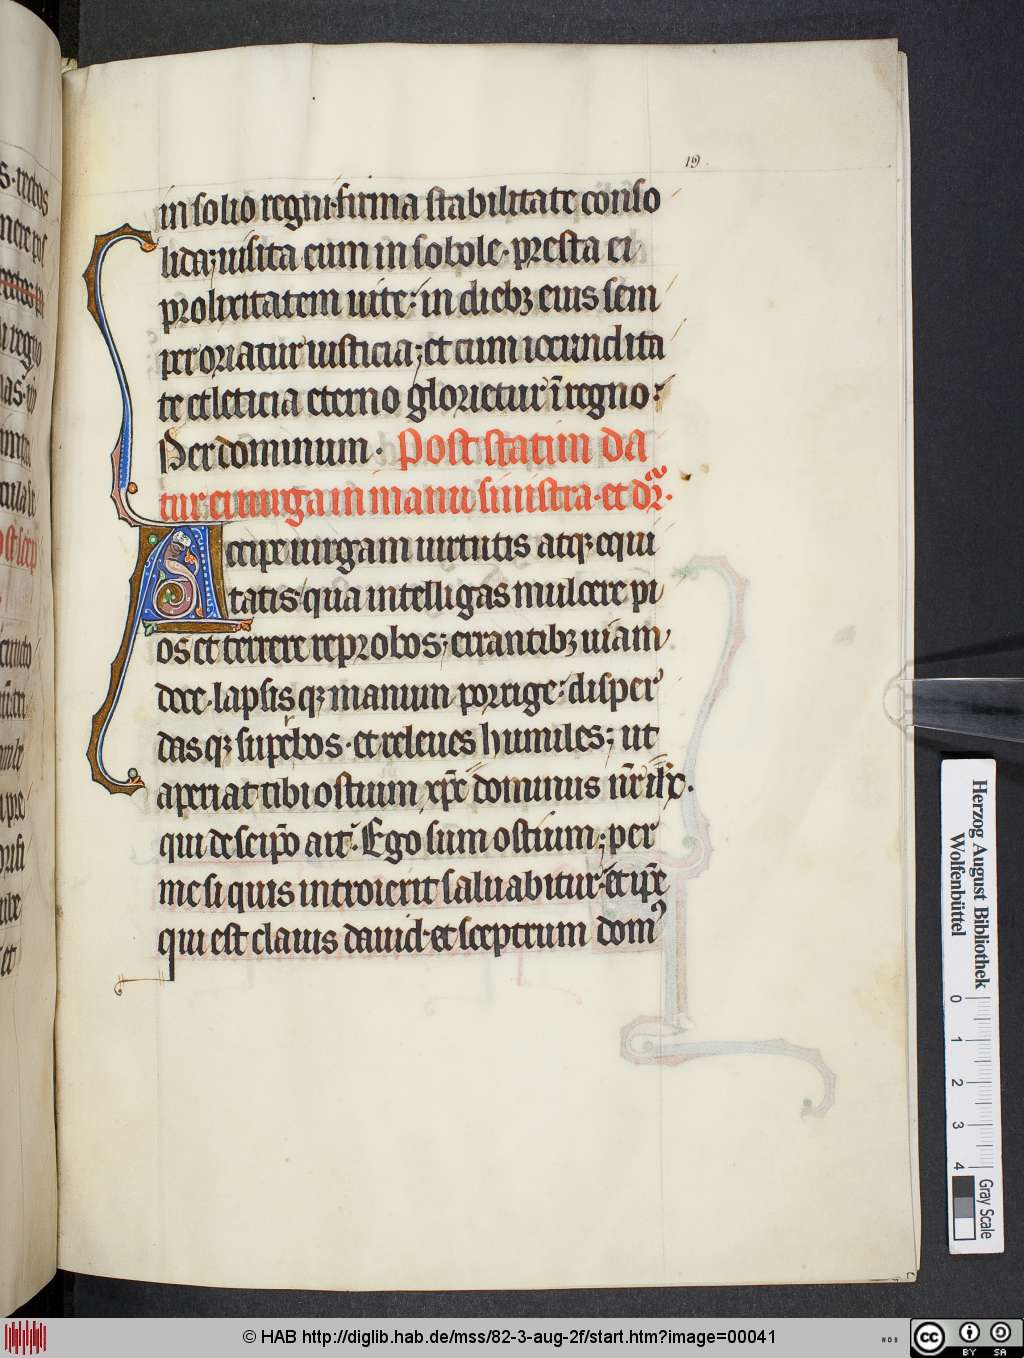 19.
in solio regni·firma stabilitate conso
lida; uisita eum in sobole· presta ei
prolixitatem uite: in dieb; eius sem
per oriatur iusticia; et cum iocundita
te et leticia eterno glorietur ī regno·
Per dominum· Post statim da
tur ei uirga in manu sinistra· et dr̄.
Accipe uirgam uirtutis atq; equi
tatis· qua intelligas mulcere pi
os et terrere reprobos; errantib; uiam
doce· lapsis q; manum porrige: disper
das q; superbos· et releues humiles; ut
aperiat tibi ostium xp̄c dominus nr̄ ih̄c·
qui de seip̄o ait· Ego sum ostium; per
me si quis introierit saluabitur· et ip̄e
qui est clauis dauid· et sceptrum domꝰ
Herzog August Bibliothek
Wolfenbüttel
0 1 2 3 4
Gray Scale
© HAB http://diglib.hab.de/mss/82-3-aug-2f/start.htm?image=00041
WDB
cc BY SA